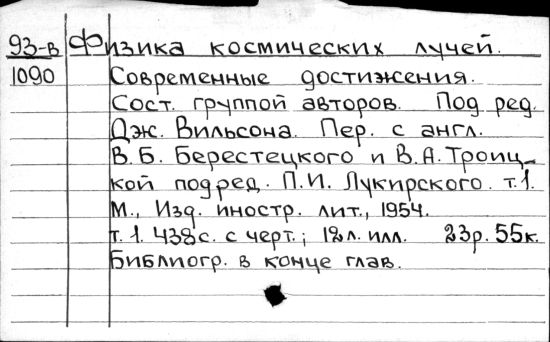 93-в Физика космических лучей.
1090 Современные достижения.
Сост. группой авторов. Под ред.
Дж. Вильсона. Пер. с англ.
В.Б. Берестецкого и В.А. Троиц-
кой под ред. П.И. Лукирского. т.1.
М., Изд. иностр. лит., 1954.
т.1. 438с. с черт.; 12л. илл. 23р. 55к.
Библиогр. в конце глав.